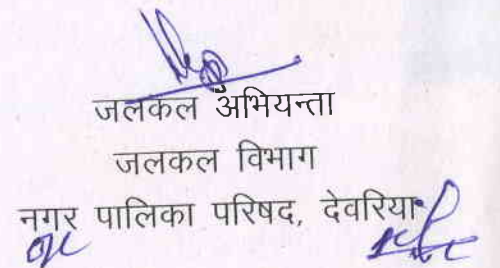 जलकल अभियन्ता
जलकल विभाग
नगर पालिका परिषद, देवरिया